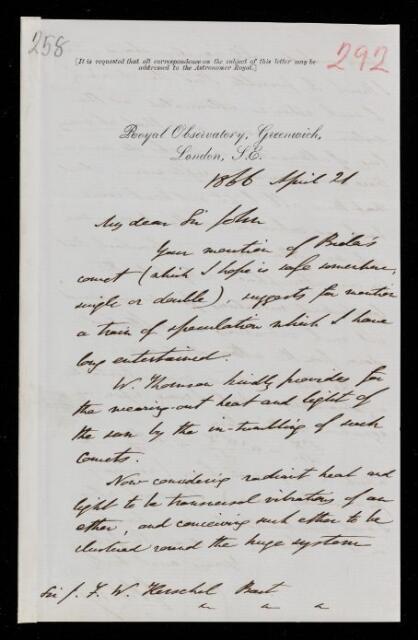 258
292
[It is requested that all correspondence on the subject of this letter may be
addressed to the Astronomer Royal.]
Royal Observatory, Greenwich,
London, S.E.
1866 April 21
My dear Sir John
Your mention of Biela's
comet (which I hope is safe somewhere,
single or double), suggests for mention
a train of speculation which I have
long entertained.
W. Thomson kindly provides for
the wearing-out heat and light of
the sun by the in-tumbling of such
comets.
Now considering radiant heat and
light to be transversal vibrations of an
ether, and conceiving such ether to be
clustered round the huge system
Sir J. F. W. Herschel Bart